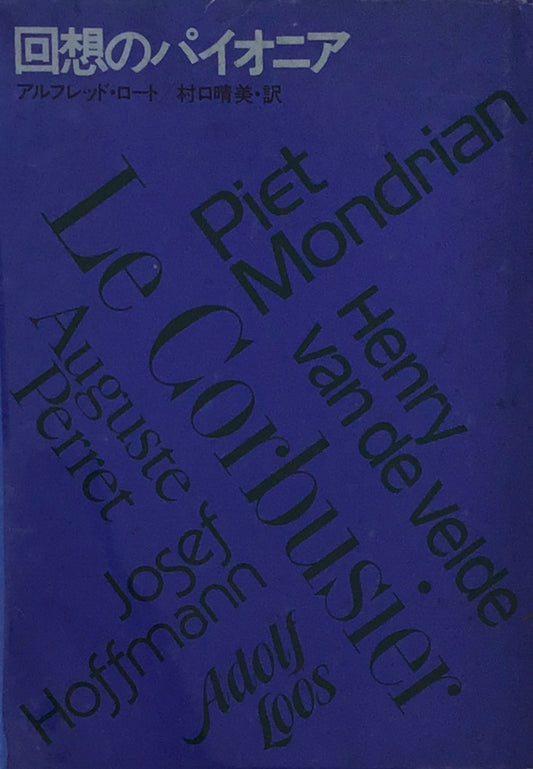 回想のパイオニア
アルフレッド・ロート 村口晴美・訳
Piet
Mondrian
Le Corbusier
Henry
van de Velde
Auguste
Perret
Josef
Hoffmann
Adolf
Loos